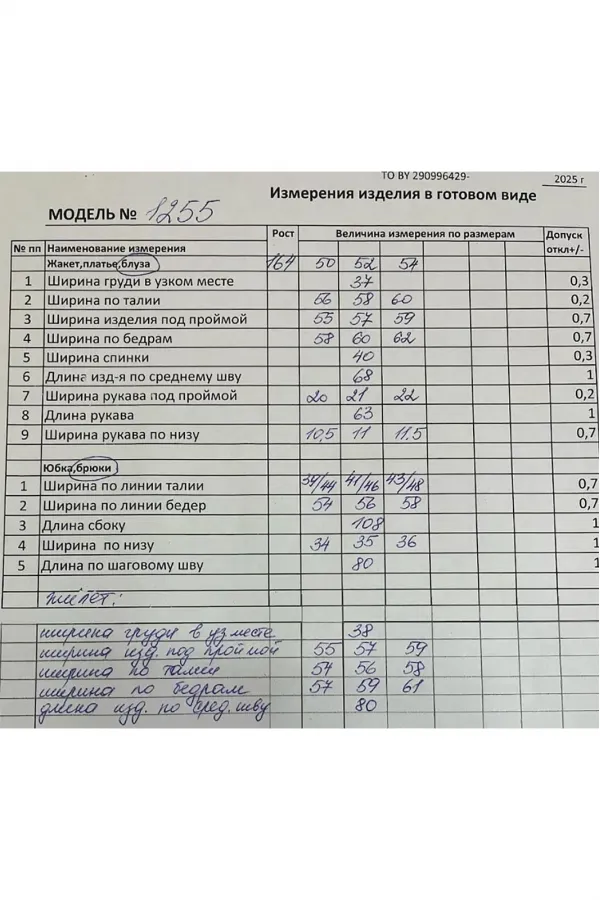 ТО BY 290996429- 2025 г
Измерения изделия в готовом виде
МОДЕЛЬ № 1255
Рост Величина измерения по размерам Допуск
№ пп Наименование измерения откл+/-
Жакет,платье,блуза 164 50 52 54
1 Ширина груди в узком месте 37 0,3
2 Ширина по талии 56 58 60 0,2
3 Ширина изделия под проймой 55 57 59 0,7
4 Ширина по бедрам 58 60 62 0,7
5 Ширина спинки 40 0,3
6 Длина изд-я по среднему шву 68 1
7 Ширина рукава под проймой 20 21 22 0,2
8 Длина рукава 63 1
9 Ширина рукава по низу 10,5 11 11.5 0,7
Юбка,брюки
1 Ширина по линии талии 39/44 41/46 43/48 0,7
2 Ширина по линии бедер 54 56 58 0,7
3 Длина сбоку 108 1
4 Ширина по низу 34 35 36 1
5 Длина по шаговому шву 80 1
жилет:
ширина груди в уз месте 38
ширина изд. под проймой 55 57 59
ширина по талии 54 56 58
ширина по бедрам 57 59 61
длина изд. по сред. шву 80